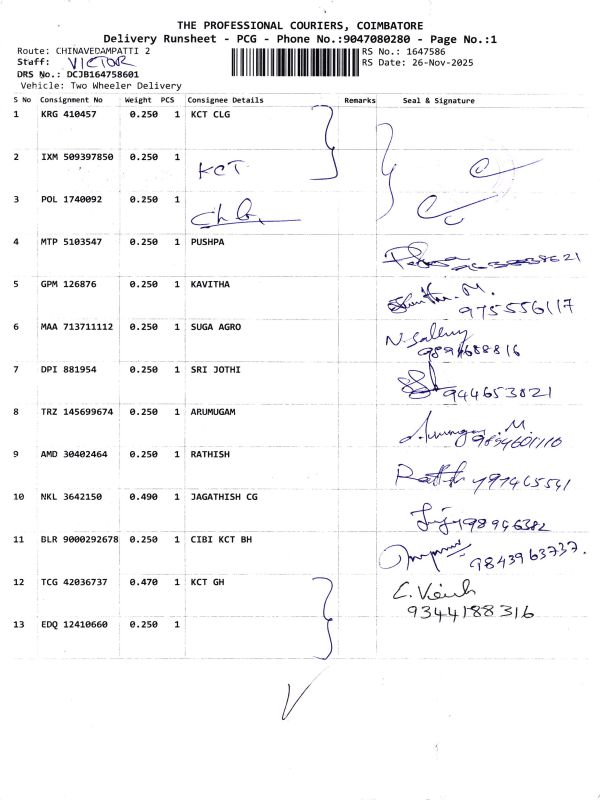 THE PROFESSIONAL COURIERS, COIMBATORE
Delivery Runsheet - PCG - Phone No.:9047080280 - Page No.:1
Route: CHINAVEDAMPATTI 2 RS No.: 1647586
Staff: VICTOR RS Date: 26-Nov-2025
DRS No.: DCJB164758601
Vehicle: Two Wheeler Delivery
S No Consignment No Weight PCS Consignee Details Remarks Seal & Signature
1 KRG 410457 0.250 1 KCT CLG
2 IXM 509397850 0.250 1 KCT
3 POL 1740092 0.250 1
4 MTP 5103547 0.250 1 PUSHPA
5 GPM 126876 0.250 1 KAVITHA
975556117
6 MAA 713711112 0.250 1 SUGA AGRO
7 DPI 881954 0.250 1 SRI JOTHI
944653821
8 TRZ 145699674 0.250 1 ARUMUGAM
9 AMD 30402464 0.250 1 RATHISH
10 NKL 3642150 0.490 1 JAGATHISH CG
11 BLR 9000292678 0.250 1 CIBI KCT BH
9843963737.
12 TCG 42036737 0.470 1 KCT GH
9344188316
13 EDQ 12410660 0.250 1